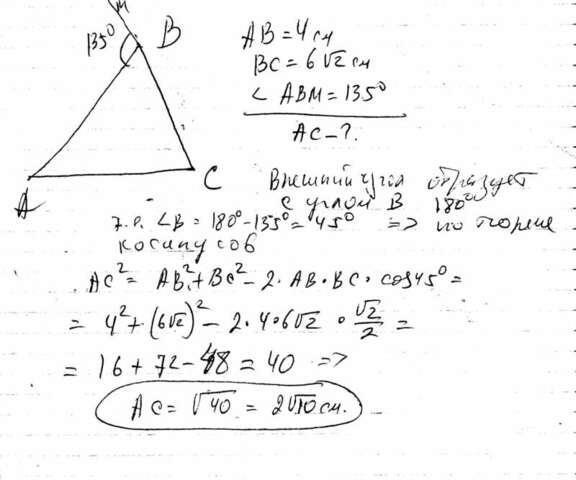 M
135°
B
A
C
AB = 4 см
BC = 6√2 см
∠ ABM = 135°
AC - ?
Внешний угол образует
с углом B 180°
т.о. ∠B = 180° - 135° = 45° => по теореме
косинусов
AC² = AB² + BC² - 2 · AB · BC · cos 45° =
= 4² + (6√2)² - 2 · 4 · 6√2 · √2/2 =
= 16 + 72 - 48 = 40 =>
AC = √40 = 2√10 см.